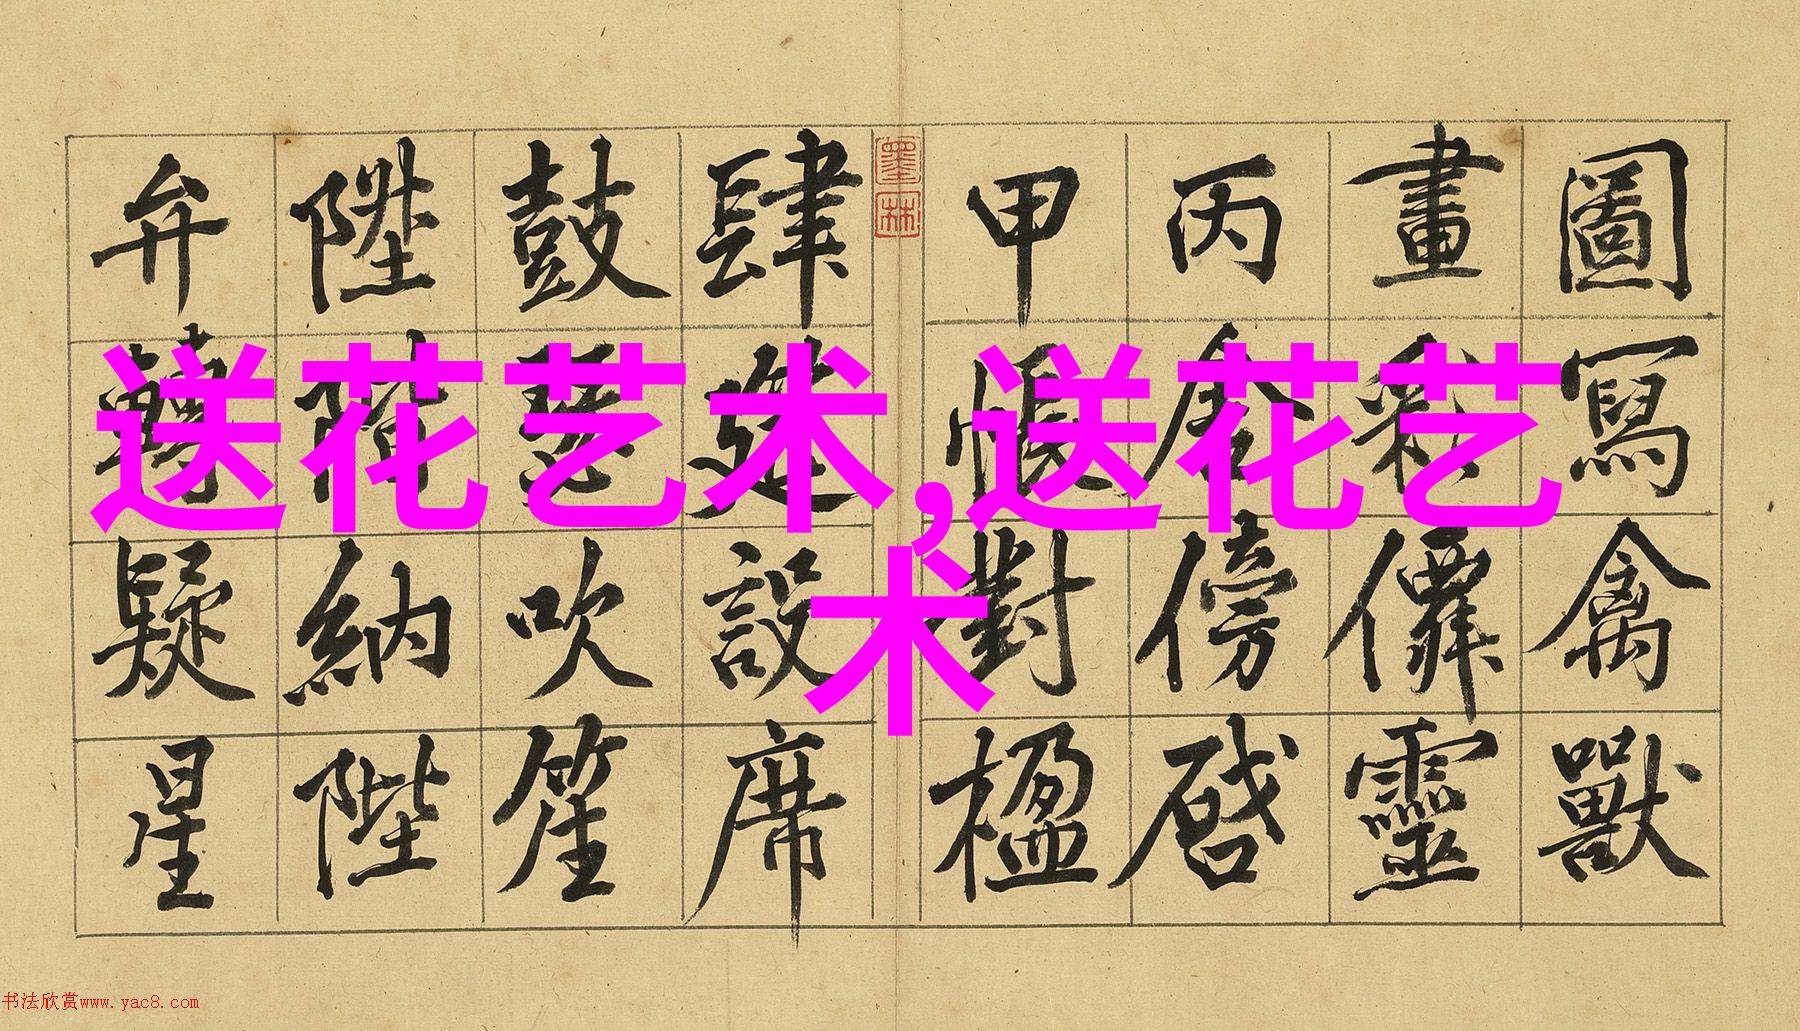 送花艺术,送花艺
术
圖寫禽獸
畫彩僊靈
丙舍傍啓
甲帳對楹
墨林
肆筵設席
鼓瑟吹笙
陞階納陛
弁轉疑星
书法欣赏www.yac8.com